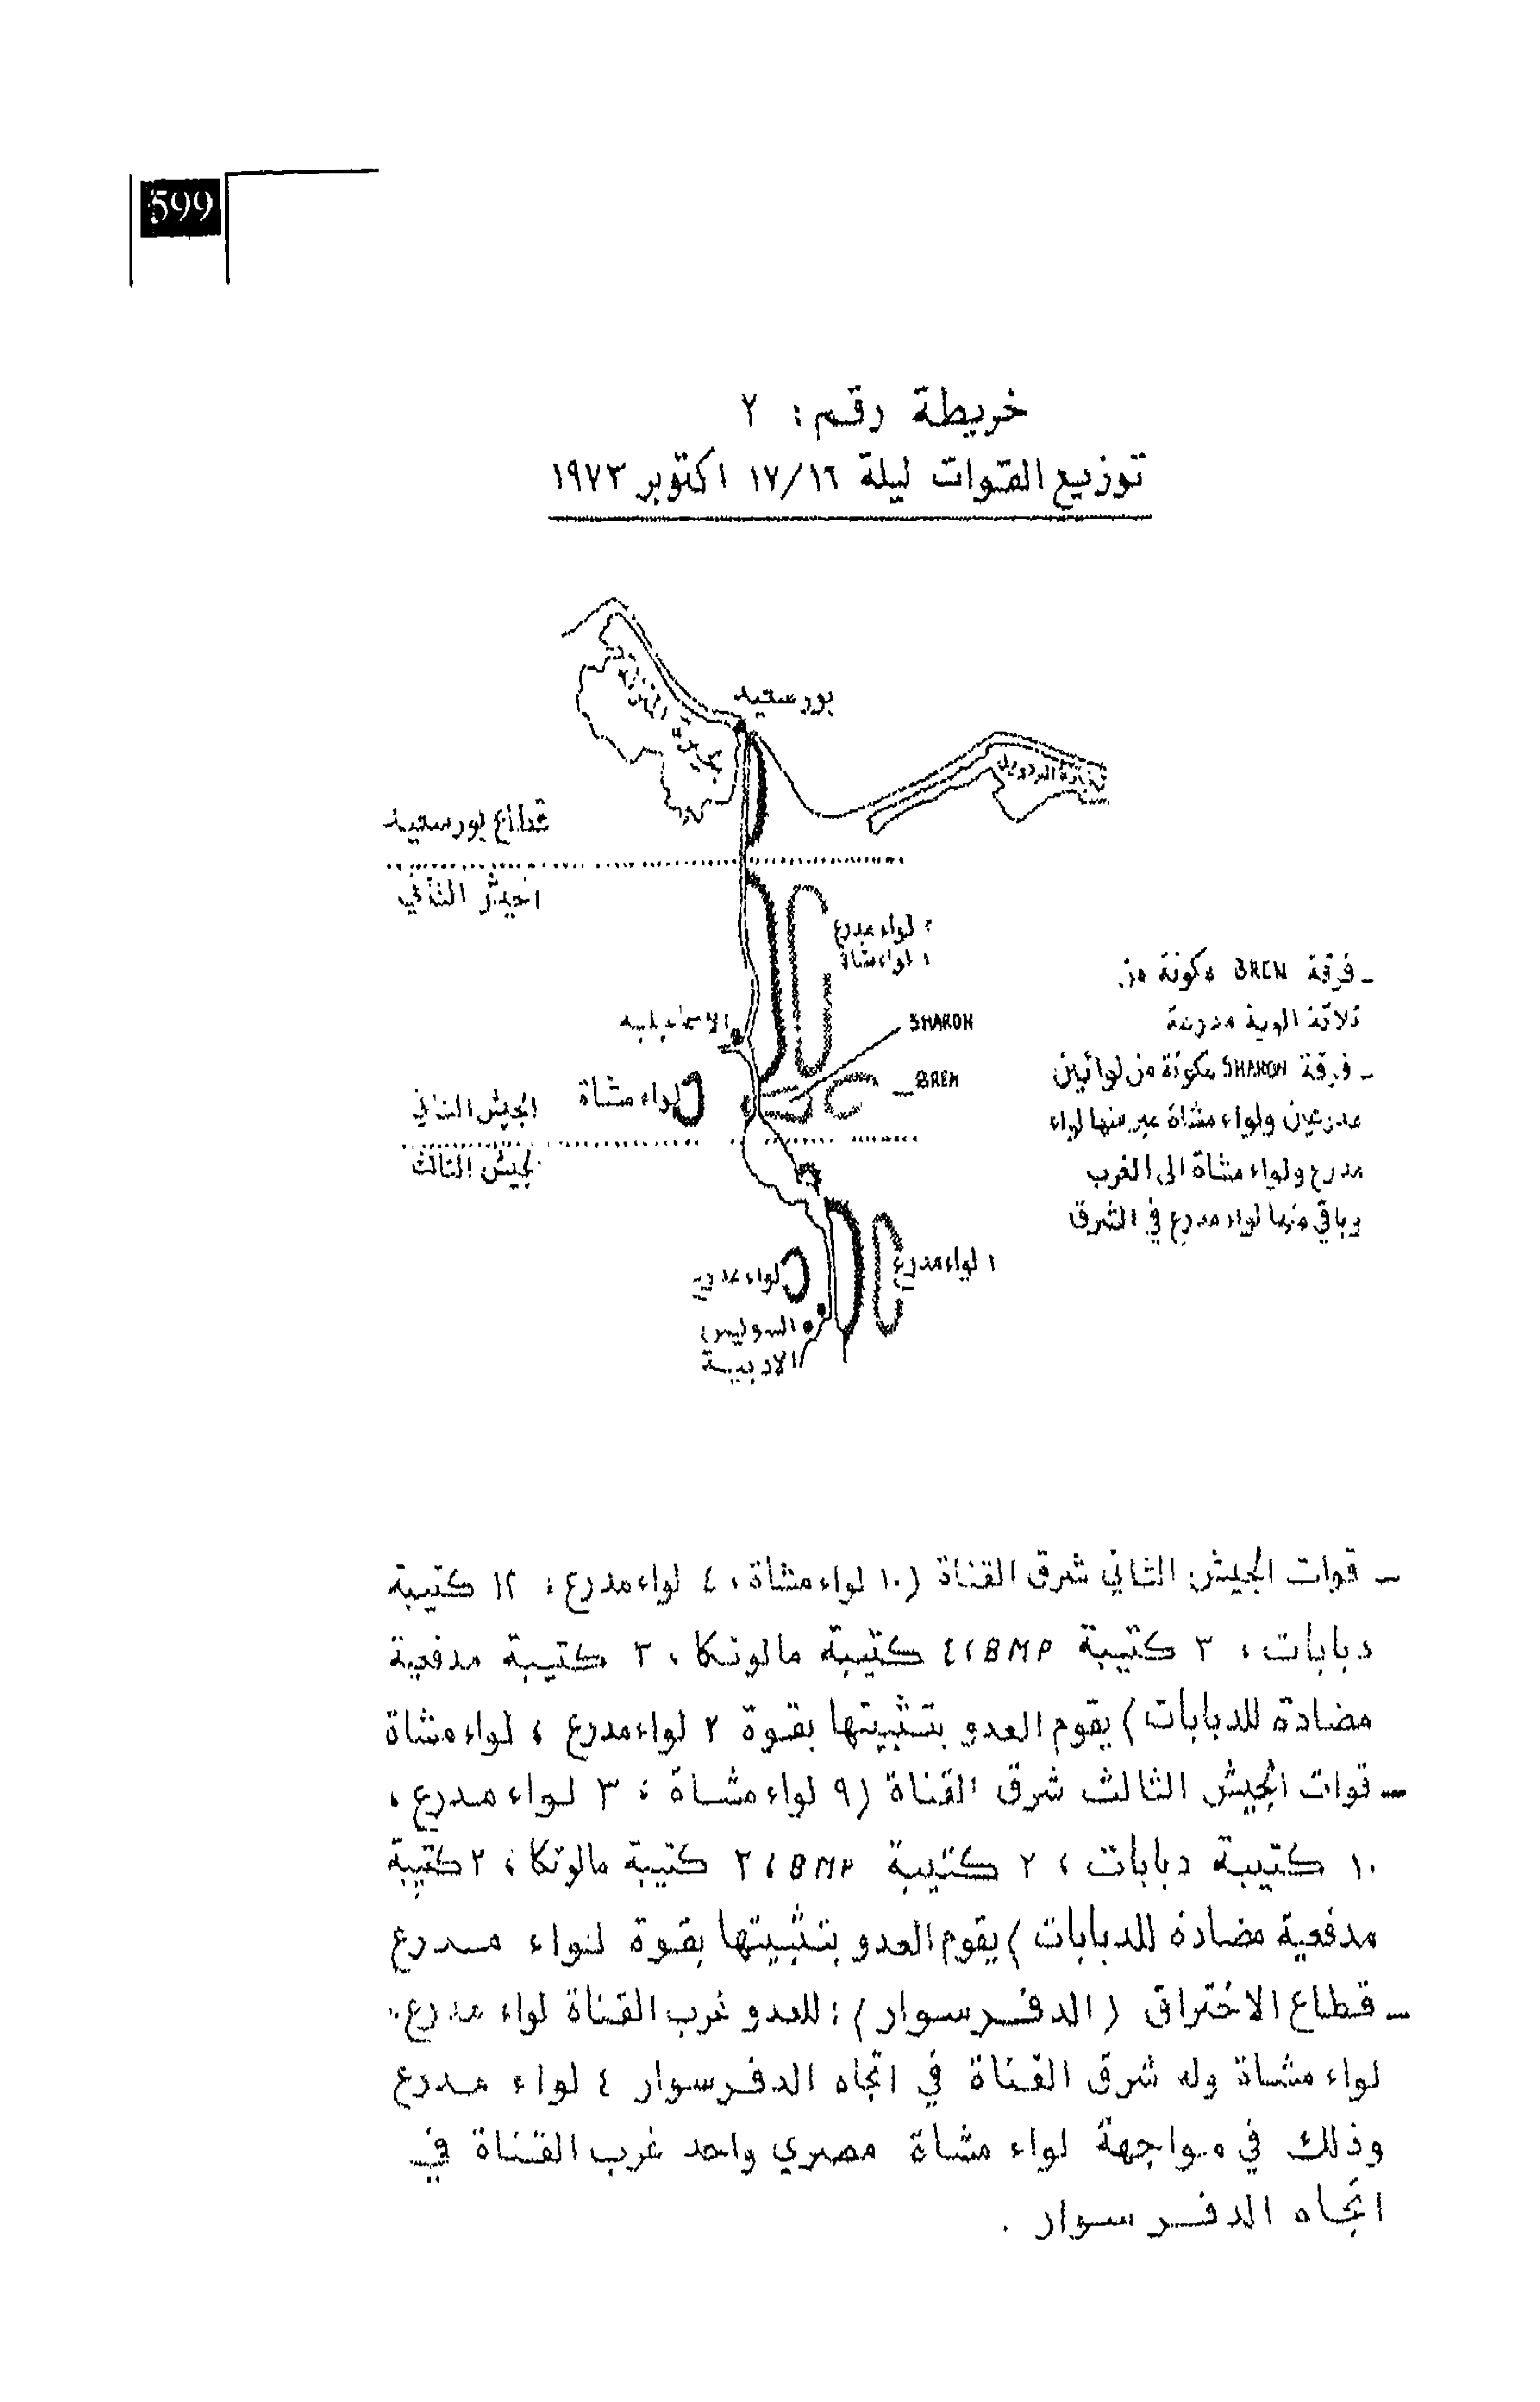 599
خريطة رقم : ٧
توزيع القوات ليلة ١٧/١٦ اكتوبر ١٩٧٣
بورسعيد
بحيرة المنزلة
قطاع بورسعيد
الجيش الثاني
٢ لواء مدرع
١ لواء مشاة
الاسماعيلية
SHARON
BREN
لواء مشاة
الجيش الثاني
الجيش الثالث
١ لواء مدرع
لواء مدرع
السويس
الادبية
- فرقة BREN مكونة من
ثلاثة الوية مدرعة
- فرقة SHARON مكونة من لوائين
مدرعين ولواء مشاة عبر منها لواء
مدرع ولواء مشاة الى الغرب
وباقي منها لواء مدرع في الشرق
- قوات الجيش الثاني شرق القناة (١٠ لواء مشاة ، ٤ لواء مدرع ، ١٢ كتيبة
دبابات ، ٣ كتيبة BMP ، ٤ كتيبة مالوتكا ، ٣ كتيبة مدفعية
مضادة للدبابات) يقوم العدو بتثبيتها بقوة ٢ لواء مدرع ، لواء مشاة
- قوات الجيش الثالث شرق القناة (٩ لواء مشاة ، ٣ لواء مدرع ،
١٠ كتيبة دبابات ، ٢ كتيبة BMP ، ٣ كتيبة مالوتكا ، ٢ كتيبة
مدفعية مضادة للدبابات) يقوم العدو بتثبيتها بقوة لواء مدرع
- قطاع الاختراق (الدفرسوار) : للعدو غرب القناة لواء مدرع ،
لواء مشاة وله شرق القناة في اتجاه الدفرسوار ٤ لواء مدرع
وذلك في مواجهة لواء مشاة مصري واحد غرب القناة في
اتجاه الدفرسوار .